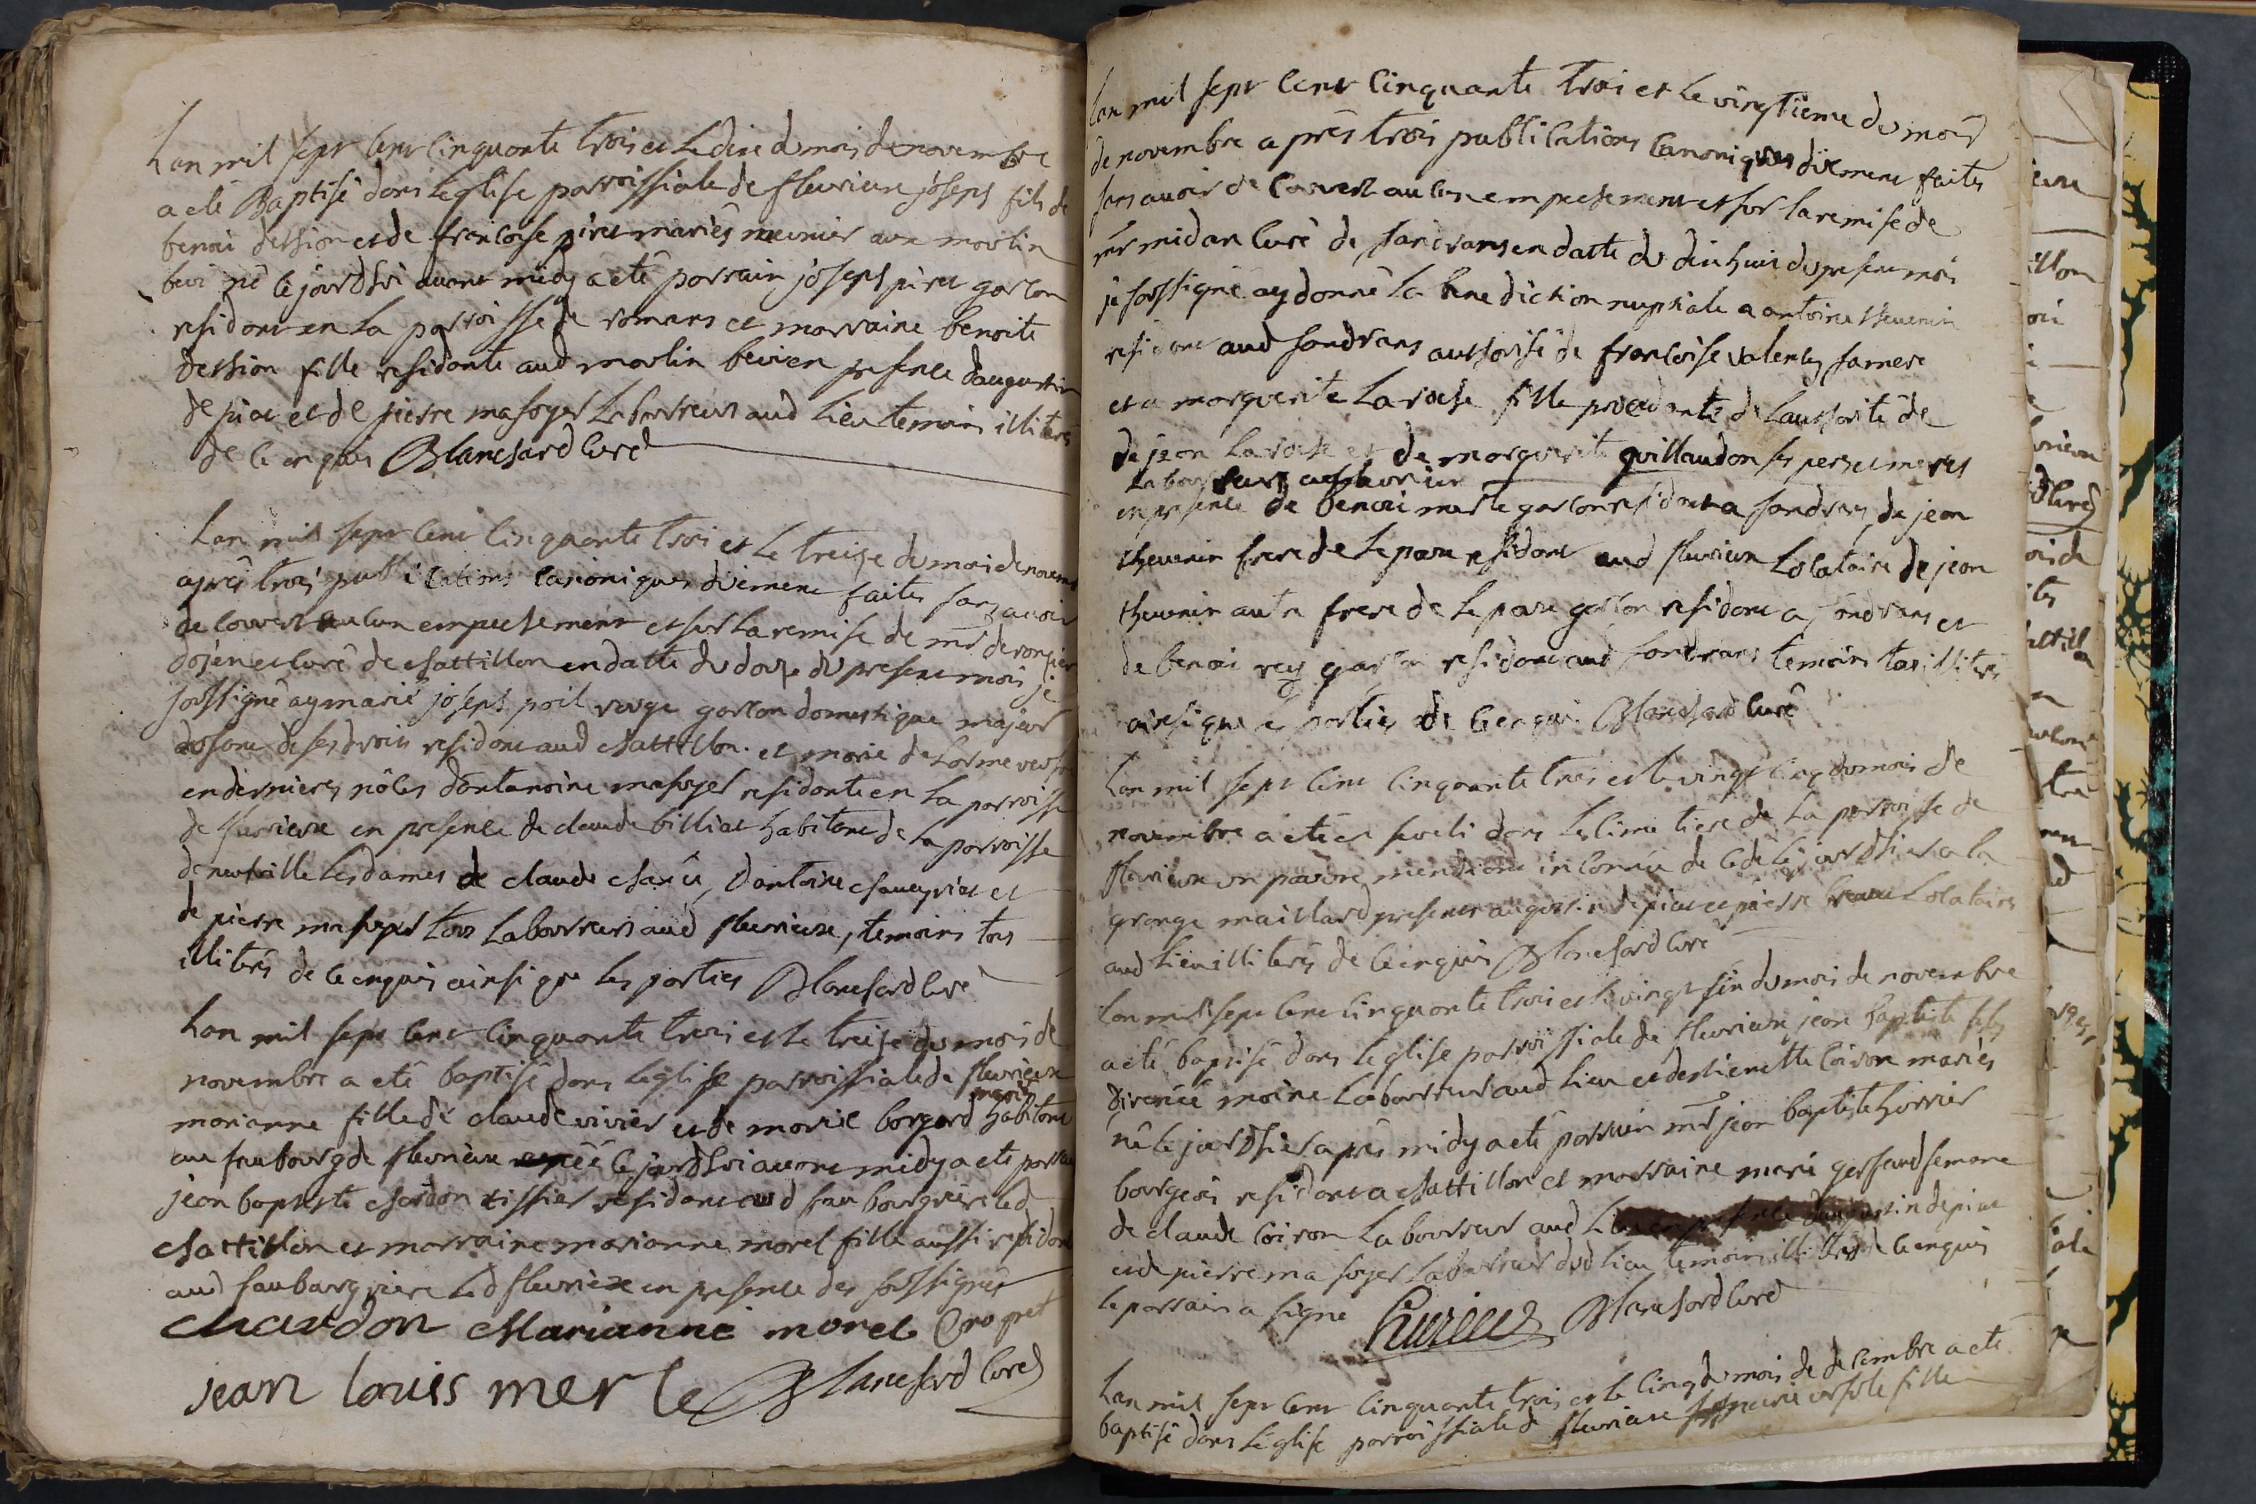 Lan mil sept cent cinquante trois et le dixe du mois de novembre
a eté Baptisé dans leglise parroissiale de fleurieux joseph fils de
benoi dethion et de francoise piret mariés meunier aux moulin
né le jourdhui avant midy a eté parrain joseph piret garcon
residant en la parroisse de romans et marraine benoite
dethion fille residante aud moulin en presence daugustin
depiat et de pierre masoyer Laboureurs aud lieu temoins illiterés
de ce enquis Blanchard curé
Lan mil sept cent cinquante trois et le treize du mois de novemb
aprés trois publications canoniques düement faites sans avoir
decouvert aucun empechement et sur la remise de mr
dojen et curé de chattillon en datte du douze du present mois je
soussigné ay marié joseph poil rouge garcon domestique majeur
usant de ses drois residant aud chattillon et marie delorme veuve
en dernieres nôces dantoinoine masoyer residante en la parroisse
de fleurieux en presence de claude billiat habitant de la parroisse
de neufville les dames de claude dantoine chauveyriat et
de pierre masoyer tous Laboureurs aud fleurieux, temoins tous
illiterés de ce enquis ainsi que les parties Blanchard curé
Lan mil sept cent cinquante trois et le treize du mois de
novembre a eté baptisé dans leglise parroissiale de fleurieux
mariés
marianne fille de claude vivier et de marie borgard habitans
au fauxbourg de fleurieux née le jourdhui avant midy a eté parrain
jean baptiste chardon tissier residant aud fauxbourg riere led
chattillon et marraine marianne morel fille aussi residante
aud fauxbourg riere led fleurieux en presence des soussignés
chardon Marianne morel Cropet
jean louis merle Blanchard curé
Lan mil sept cent cinquante trois et le vingtieme du mois
de novembre aprés trois publications canoniques düement faites
sans avoir decouvert aucun empechement et sur la remise de
mr midan curé de sandrans en datte du dix huit du present mois
je soussigné ay donné la benediction nuptiale a antoine thevenin
residant aud sandrans authorisé de francoise valentin sa mere
et a marguerite Laroche fille procedante de lauthorité de
de jean Laroche et de marguerite guillaudon ses pere et meres
Laboureurs aud fleurieux
en presence de benoi merle garcon residant a sandrans, de jean
thevenin frere de lepoux residant aud fleurieux Locataire de jean
thevenin autre frere de lepoux garcon residant a sandrans et
de benoi rey garcon residant aud sandrans temoins tous illiterés
ainsi que les parties de ce enquis Blanchard curé
Lan mil sept cent cinquante trois et le vingt cinq du mois de
novembre a eté enseveli dans le cimetiere de la parroisse de
fleurieux un pauvre mendiant inconnu decedé le jourdhier a la
grange maillard presents augustin depiat et pierre Locataires
aud lieu illiterés de ce enquis Blanchard curé
Lan mil sept cent cinquante trois et le vingt six du mois de novembre
a eté baptisé dans leglise parroissiale de fleurieux jean baptiste fils
direnée moine Laboureur aud lieu et destienette coiron mariés
né le jourdhier aprés midy a eté parrain mr jean baptiste hurrier
bourgeois residant a chattillon et marraine marie gerfaud femme
de claude coiron Laboureur aud lieu en presence daugustin depiat
et de pierre masoyer Laboureur dud lieu temoins illiterés de ce enquis
le parrain a signe hurrier Blanchard curé
Lan mil sept cent cinquante trois et le cinq du mois de decembre a eté
baptisé dans leglise parroissiale de fleurieux marie ursule fille